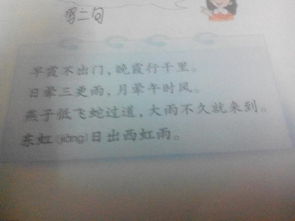 写二句
早霞不出门，晚霞行千里。
日晕三更雨，月晕午时风。
燕子低飞蛇过道，大雨不久就来到。
东虹(jiàng)日出西虹雨。